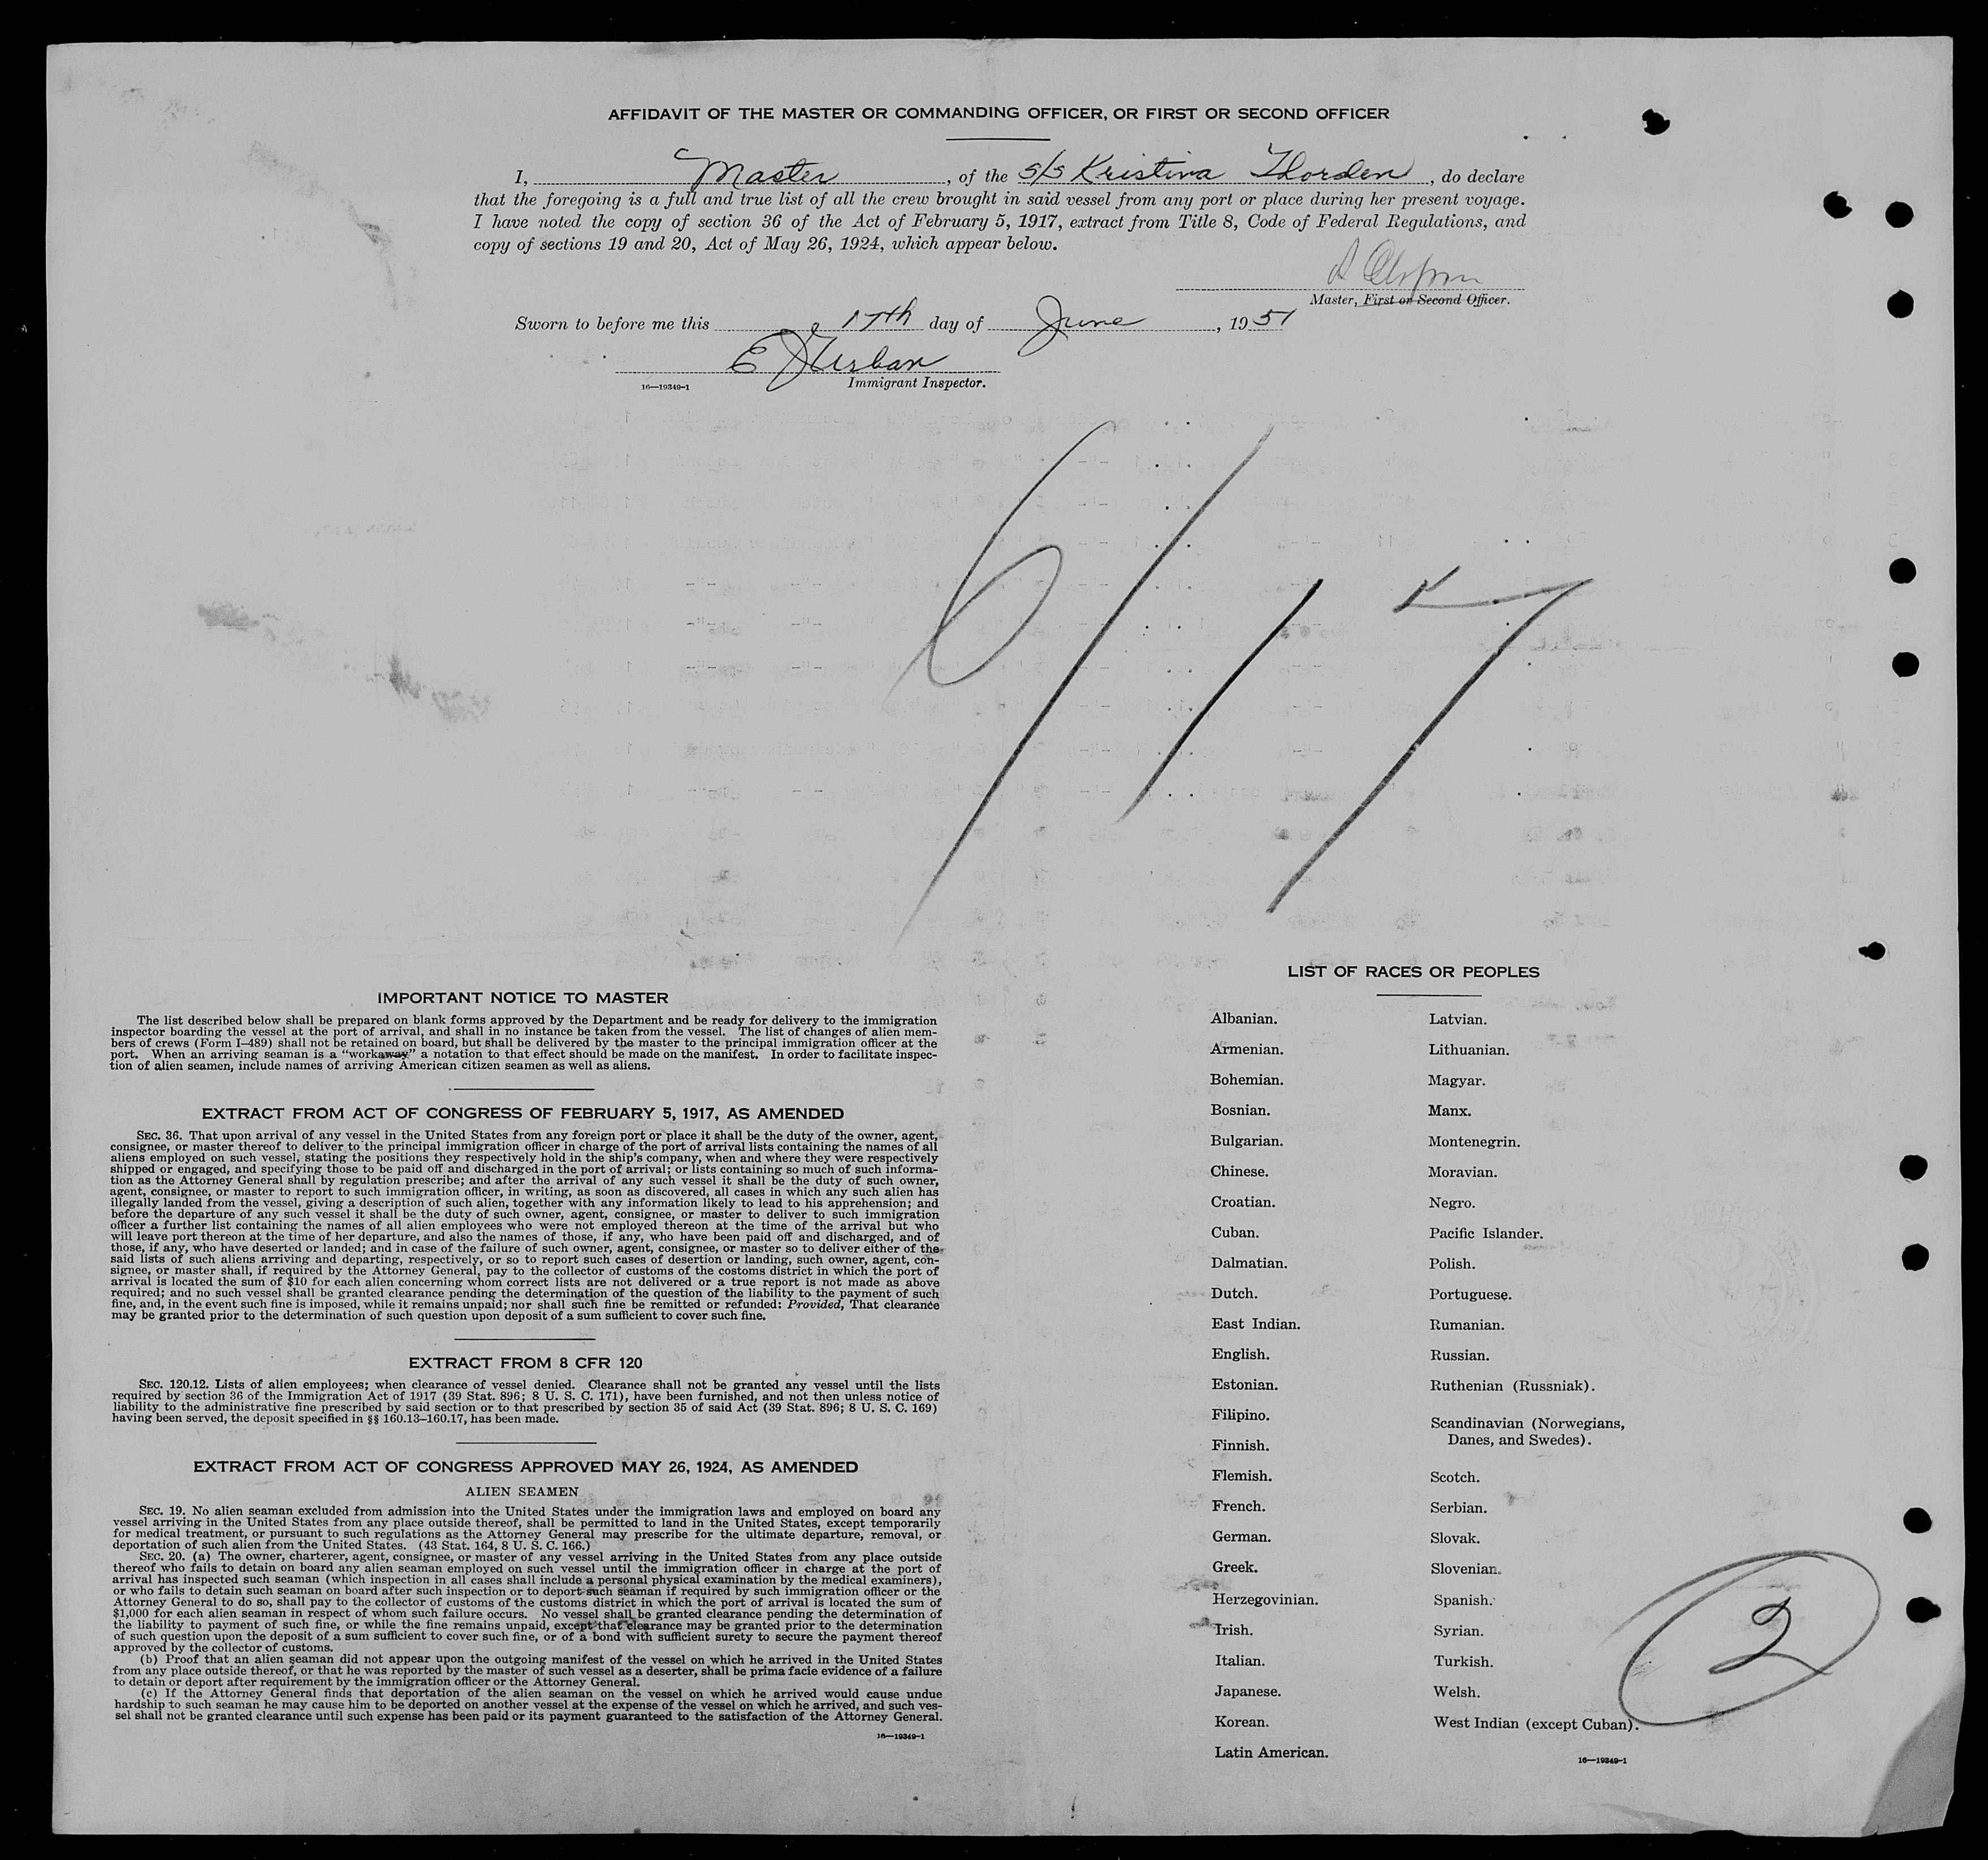 AFFIDAVIT OF THE MASTER OR COMMANDING OFFICER, OR FIRST OR SECOND OFFICER
I, Master, of the S/S Kristina Thorden, do declare
that the foregoing is a full and true list of all the crew brought in said vessel from any port or place during her present voyage.
I have noted the copy of section 36 of the Act of February 5, 1917, extract from Title 8, Code of Federal Regulations, and
copy of sections 19 and 20, Act of May 26, 1924, which appear below.
Master, First or Second Officer.
Sworn to before me this 17th day of June, 1951
E J Urban
16—19349-1 Immigrant Inspector.
6/17
IMPORTANT NOTICE TO MASTER
The list described below shall be prepared on blank forms approved by the Department and be ready for delivery to the immigration
inspector boarding the vessel at the port of arrival, and shall in no instance be taken from the vessel. The list of changes of alien mem-
bers of crews (Form I-489) shall not be retained on board, but shall be delivered by the master to the principal immigration officer at the
port. When an arriving seaman is a “workaway” a notation to that effect should be made on the manifest. In order to facilitate inspec-
tion of alien seamen, include names of arriving American citizen seamen as well as aliens.
EXTRACT FROM ACT OF CONGRESS OF FEBRUARY 5, 1917, AS AMENDED
SEC. 36. That upon arrival of any vessel in the United States from any foreign port or place it shall be the duty of the owner, agent,
consignee, or master thereof to deliver to the principal immigration officer in charge of the port of arrival lists containing the names of all
aliens employed on such vessel, stating the positions they respectively hold in the ship's company, when and where they were respectively
shipped or engaged, and specifying those to be paid off and discharged in the port of arrival; or lists containing so much of such informa-
tion as the Attorney General shall by regulation prescribe; and after the arrival of any such vessel it shall be the duty of such owner,
agent, consignee, or master to report to such immigration officer, in writing, as soon as discovered, all cases in which any such alien has
illegally landed from the vessel, giving a description of such alien, together with any information likely to lead to his apprehension; and
before the departure of any such vessel it shall be the duty of such owner, agent, consignee, or master to deliver to such immigration
officer a further list containing the names of all alien employees who were not employed thereon at the time of the arrival but who
will leave port thereon at the time of her departure, and also the names of those, if any, who have been paid off and discharged, and of
those, if any, who have deserted or landed; and in case of the failure of such owner, agent, consignee, or master so to deliver either of the
said lists of such aliens arriving and departing, respectively, or so to report such cases of desertion or landing, such owner, agent, con-
signee, or master shall, if required by the Attorney General, pay to the collector of customs of the customs district in which the port of
arrival is located the sum of $10 for each alien concerning whom correct lists are not delivered or a true report is not made as above
required; and no such vessel shall be granted clearance pending the determination of the question of the liability to the payment of such
fine, and, in the event such fine is imposed, while it remains unpaid; nor shall such fine be remitted or refunded: Provided, That clearance
may be granted prior to the determination of such question upon deposit of a sum sufficient to cover such fine.
EXTRACT FROM 8 CFR 120
SEC. 120.12. Lists of alien employees; when clearance of vessel denied. Clearance shall not be granted any vessel until the lists
required by section 36 of the Immigration Act of 1917 (39 Stat. 896; 8 U. S. C. 171), have been furnished, and not then unless notice of
liability to the administrative fine prescribed by said section or to that prescribed by section 35 of said Act (39 Stat. 896; 8 U. S. C. 169)
having been served, the deposit specified in §§ 160.13-160.17, has been made.
EXTRACT FROM ACT OF CONGRESS APPROVED MAY 26, 1924, AS AMENDED
ALIEN SEAMEN
SEC. 19. No alien seaman excluded from admission into the United States under the immigration laws and employed on board any
vessel arriving in the United States from any place outside thereof, shall be permitted to land in the United States, except temporarily
for medical treatment, or pursuant to such regulations as the Attorney General may prescribe for the ultimate departure, removal, or
deportation of such alien from the United States. (43 Stat. 164, 8 U. S. C. 166.)
SEC. 20. (a) The owner, charterer, agent, consignee, or master of any vessel arriving in the United States from any place outside
thereof who fails to detain on board any alien seaman employed on such vessel until the immigration officer in charge at the port of
arrival has inspected such seaman (which inspection in all cases shall include a personal physical examination by the medical examiners),
or who fails to detain such seaman on board after such inspection or to deport such seaman if required by such immigration officer or the
Attorney General to do so, shall pay to the collector of customs of the customs district in which the port of arrival is located the sum of
$1,000 for each alien seaman in respect of whom such failure occurs. No vessel shall be granted clearance pending the determination of
the liability to payment of such fine, or while the fine remains unpaid, except that clearance may be granted prior to the determination
of such question upon the deposit of a sum sufficient to cover such fine, or of a bond with sufficient surety to secure the payment thereof
approved by the collector of customs.
(b) Proof that an alien seaman did not appear upon the outgoing manifest of the vessel on which he arrived in the United States
from any place outside thereof, or that he was reported by the master of such vessel as a deserter, shall be prima facie evidence of a failure
to detain or deport after requirement by the immigration officer or the Attorney General.
(c) If the Attorney General finds that deportation of the alien seaman on the vessel on which he arrived would cause undue
hardship to such seaman he may cause him to be deported on another vessel at the expense of the vessel on which he arrived, and such ves-
sel shall not be granted clearance until such expense has been paid or its payment guaranteed to the satisfaction of the Attorney General.
16—19349-1
LIST OF RACES OR PEOPLES
Albanian.
Armenian.
Bohemian.
Bosnian.
Bulgarian.
Chinese.
Croatian.
Cuban.
Dalmatian.
Dutch.
East Indian.
English.
Estonian.
Filipino.
Finnish.
Flemish.
French.
German.
Greek.
Herzegovinian.
Irish.
Italian.
Japanese.
Korean.
Latin American.
Latvian.
Lithuanian.
Magyar.
Manx.
Montenegrin.
Moravian.
Negro.
Pacific Islander.
Polish.
Portuguese.
Rumanian.
Russian.
Ruthenian (Russniak).
Scandinavian (Norwegians,
Danes, and Swedes).
Scotch.
Serbian.
Slovak.
Slovenian.
Spanish.
Syrian.
Turkish.
Welsh.
West Indian (except Cuban).
16—19349-1
2